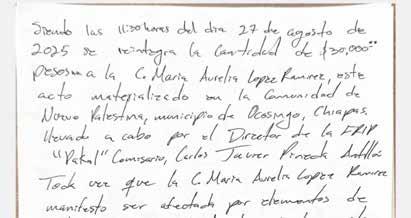 Siendo las 11:30 horas del día 27 de agosto de
2025 se reintegra la cantidad de $30,000.00
pesos m a la C. Maria Aurelia Lopez Ramirez, este
acto materializado en la Comunidad de
Nuevo Palestina, municipio de Ocosingo, Chiapas,
llevado a cabo por el Director de la FRIP
"Pakal" Comisario, Carlos Javier Pineda
Toda vez que la C. Maria Aurelia Lopez Ramirez
manifesto ser afectada por elementos de